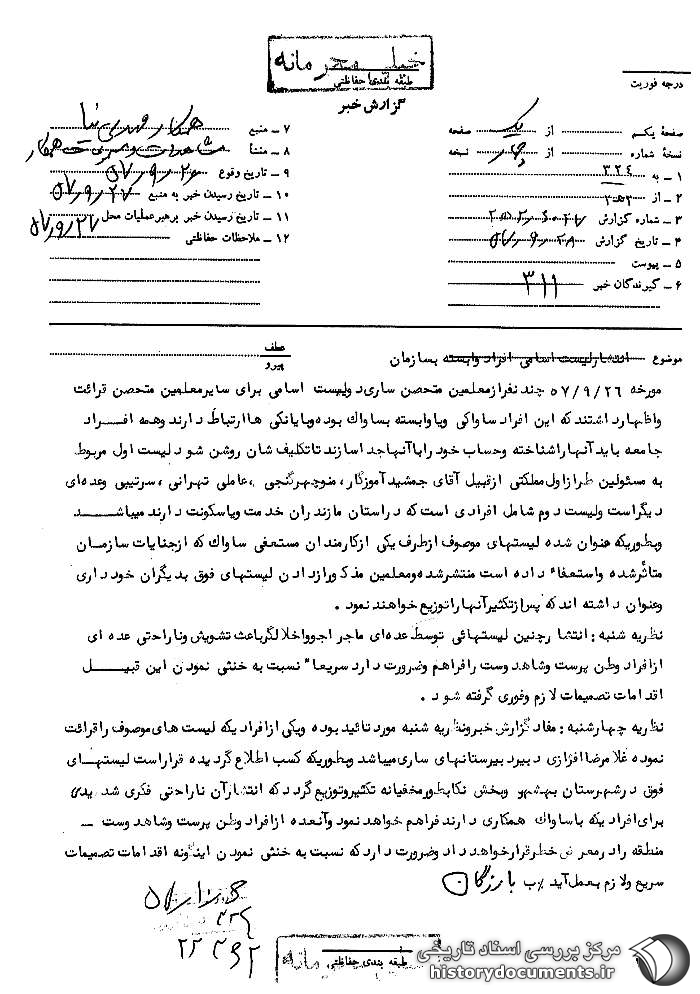 خیلی محرمانه
طبقه بندی حفاظتی
گزارش خبر
درجه فوریت
صفحهٔ یکم از یک صفحه
نسخهٔ شماره از چهار نسخه
۱ ـ به ۳۲٤
۲ ـ از
۳ ـ شماره گزارش
۴ ـ تاریخ گزارش ۵۷٫۹٫۲۸
۵ ـ پیوست
۶ ـ گیرندگان خبر ۳۱۱
۷ ـ منبع همکار مهدی نیا
۸ ـ منشأ مشاهدات و همکار
۹ ـ تاریخ وقوع ۵۷٫۹٫۲۶
۱۰ ـ تاریخ رسیدن خبر به منبع ۵۷٫۹٫۲۷
۱۱ ـ تاریخ رسیدن خبر برهبر عملیات محل ۵۷٫۹٫۲۷
۱۲ ـ ملاحظات حفاظتی
موضوع انتشار لیست اسامی افراد وابسته بسازمان
عطف
پیرو
مورخه ۵۷/۹/۲۶ چند نفر از معلمین متحصن ساری دو لیست اسامی برای سایر معلمین متحصن قرائت
و اظهار داشتند که این افراد ساواکی و یا وابسته بساواک بوده و یا بانکی ها ارتباط دارند و همه افراد
جامعه باید آنها را شناخته و حساب خود را با آنها جدا سازند تا تکلیف شان روشن شود لیست اول مربوط
به مسئولین طراز اول مملکتی از قبیل آقای جمشید آموزگار، منوچهر گنجی، عاملی تهرانی، سرتیبی وعده ای
دیگر است ولیست دوم شامل افرادی است که در استان مازندران خدمت و یا سکونت دارند میباشد
و بطوریکه عنوان شده لیستهای موصوف از طرف یکی از کارمندان مستعفی ساواک که از جنایات سازمان
متأثر شده و استعفاء داده است منتشر شده و معلمین مذکور از دادن لیستهای فوق بدیگران خودداری
و عنوان داشته اند که پس از تکثیر آنها را توزیع خواهند نمود .
نظریه شنبه : انتشار چنین لیستهائی توسط عده ای ماجراجو و اخلالگر باعث تشویش و ناراحتی عده ای
از افراد وطن پرست و شاهدوست را فراهم و ضرورت دارد سریعا" نسبت به خنثی نمودن این قبیل
اقدامات تصمیمات لازم و فوری گرفته شود .
نظریه چهارشنبه : مفاد گزارش خبر و نظریه شنبه مورد تائید بوده و یکی از افرادیکه لیست های موصوف را قرائت
نموده غلامرضا افزازی دبیر دبیرستانهای ساری میباشد و بطوریکه کسب اطلاع گردیده قرار است لیستهای
فوق در شهرستان بهشهر و بخش نکا بطور مخفیانه تکثیر و توزیع گردد که انتشار آن ناراحتی فکری شدیدی
برای افرادیکه با ساواک همکاری دارند فراهم خواهد نمود و آنعده از افراد وطن پرست و شاهدوست ـ
منطقه را در معرض خطر قرار خواهد داد و ضرورت دارد که نسبت به خنثی نمودن اینگونه اقدامات تصمیمات
سریع و لازم بعمل آید پ بازرگان
طبقه بندی حفاظتی
مرکز بررسی اسناد تاریخی
historydocuments.ir